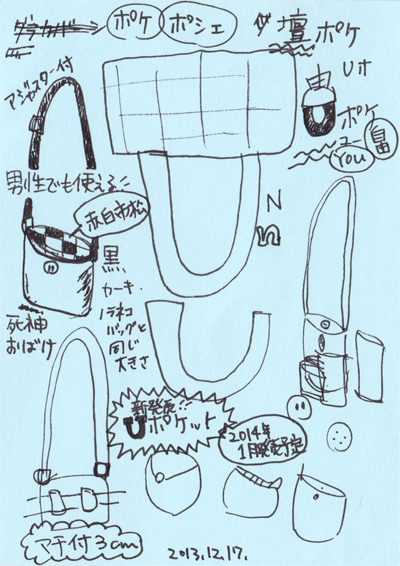 ポケ
ポシェ
ダ壇ポケ
アジャスター付
Uポ
ポケ
YOU
男性でも使える!!
赤白市松
N
黒、
カーキ・
ノラネコ
バッグと
同じ
大きさ
死神
おばけ
新発売!!
Uポケット
2014年
1月発売予定
マチ付3cm
2013.12.17.